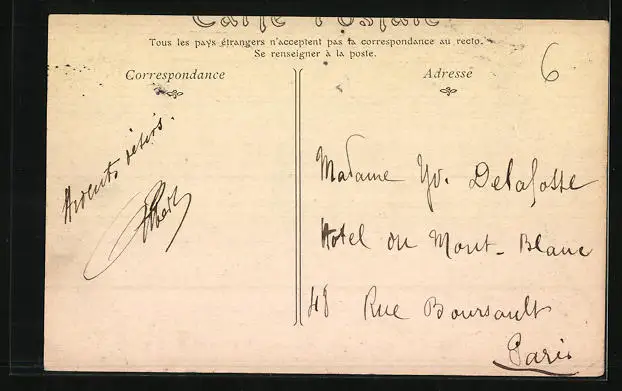 Carte Postale
Tous les pays étrangers n'acceptent pas la correspondance au recto.
Se renseigner à la poste.
Correspondance
Ardents désirs.
Albert
Adresse
6
Madame Yv. Delafosse
Hotel du Mont-Blanc
48 Rue Boursault
Paris